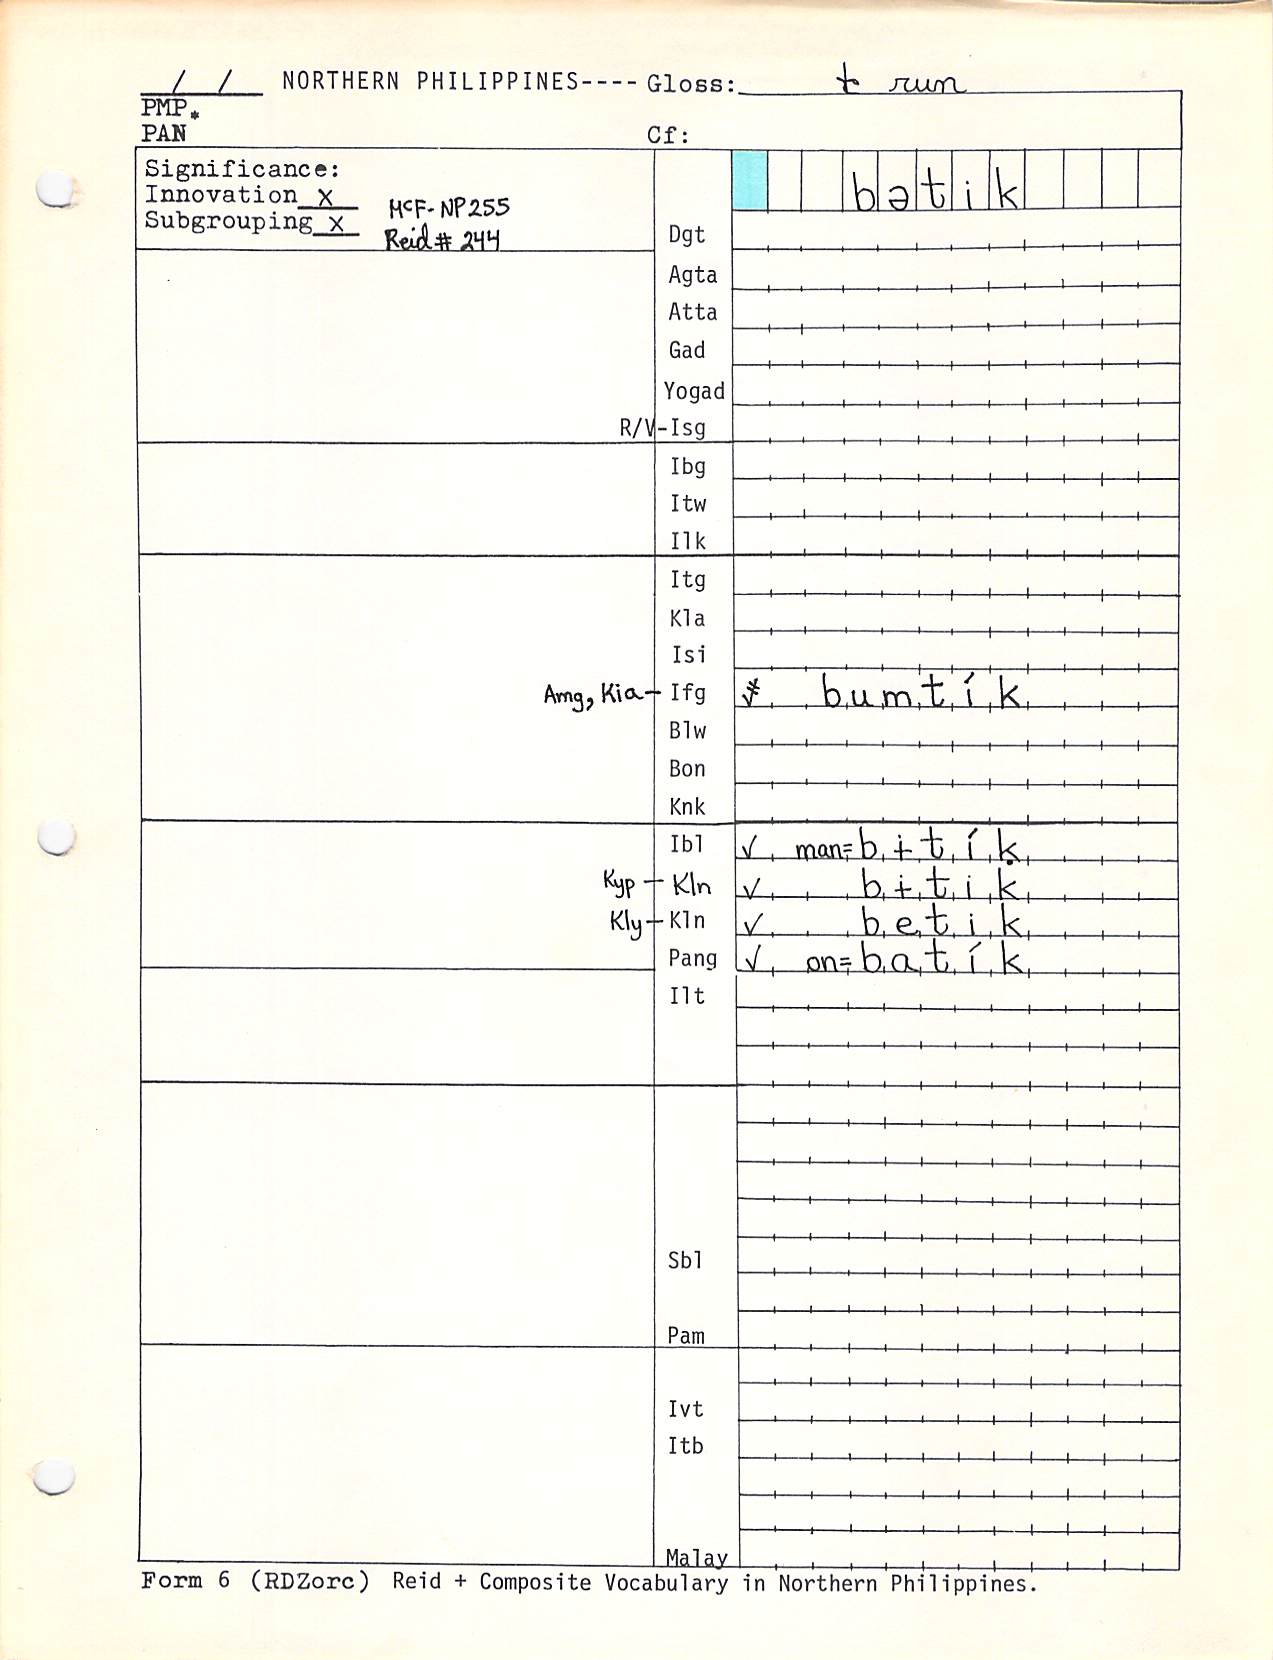 / / NORTHERN PHILIPPINES---- Gloss: t run
PMP*
PAN Cf:
Significance:
Innovation X McF-NP255
Subgrouping X Reid# 244
bətik
Dgt
Agta
Atta
Gad
Yogad
R/V-Isg
Ibg
Itw
Ilk
Itg
Kla
Isi
Amg, Kia-Ifg bumtík
Blw
Bon
Knk
Ibl ✓ man=bɨtíḳ
Kyp-Kln ✓ bɨtik
Kly-Kln ✓ betik
Pang ✓ on=batík
Ilt
Sbl
Pam
Ivt
Itb
Malay
Form 6 (RDZorc) Reid + Composite Vocabulary in Northern Philippines.